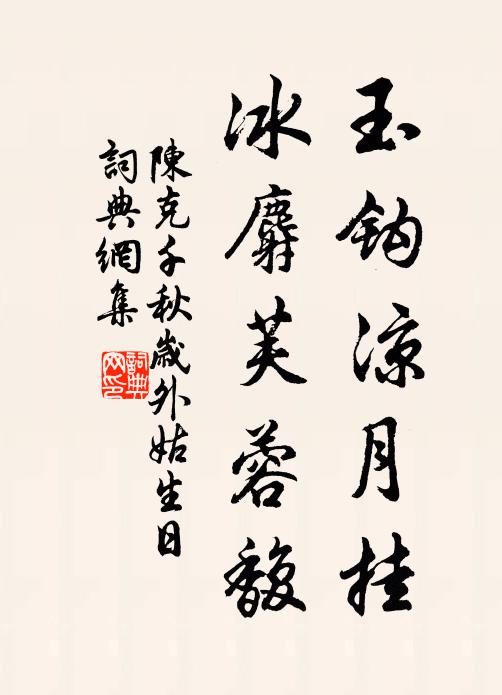 玉鈎涼月挂
冰麝芙蓉馥
陳克千秋歲外姑生日
詞典網集
詞典网印